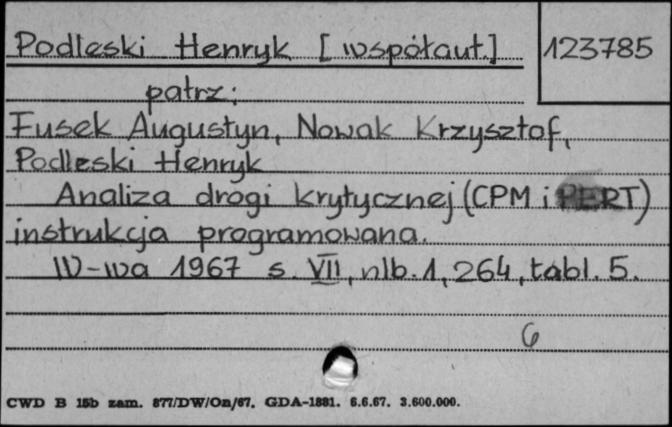 Podleski Henryk [współaut.] 123785
patrz:
Fusek Augustyn, Nowak Krzysztof,
Podleski Henryk
Analiza drogi krytycznej (CPM i PERT)
instrukcja programowana.
W-wa 1967 s. VII, nlb. 1, 264, tabl. 5.
6
CWD B 15b zam. 877/DW/On/67. GDA-1881. 6.6.67. 3.600.000.